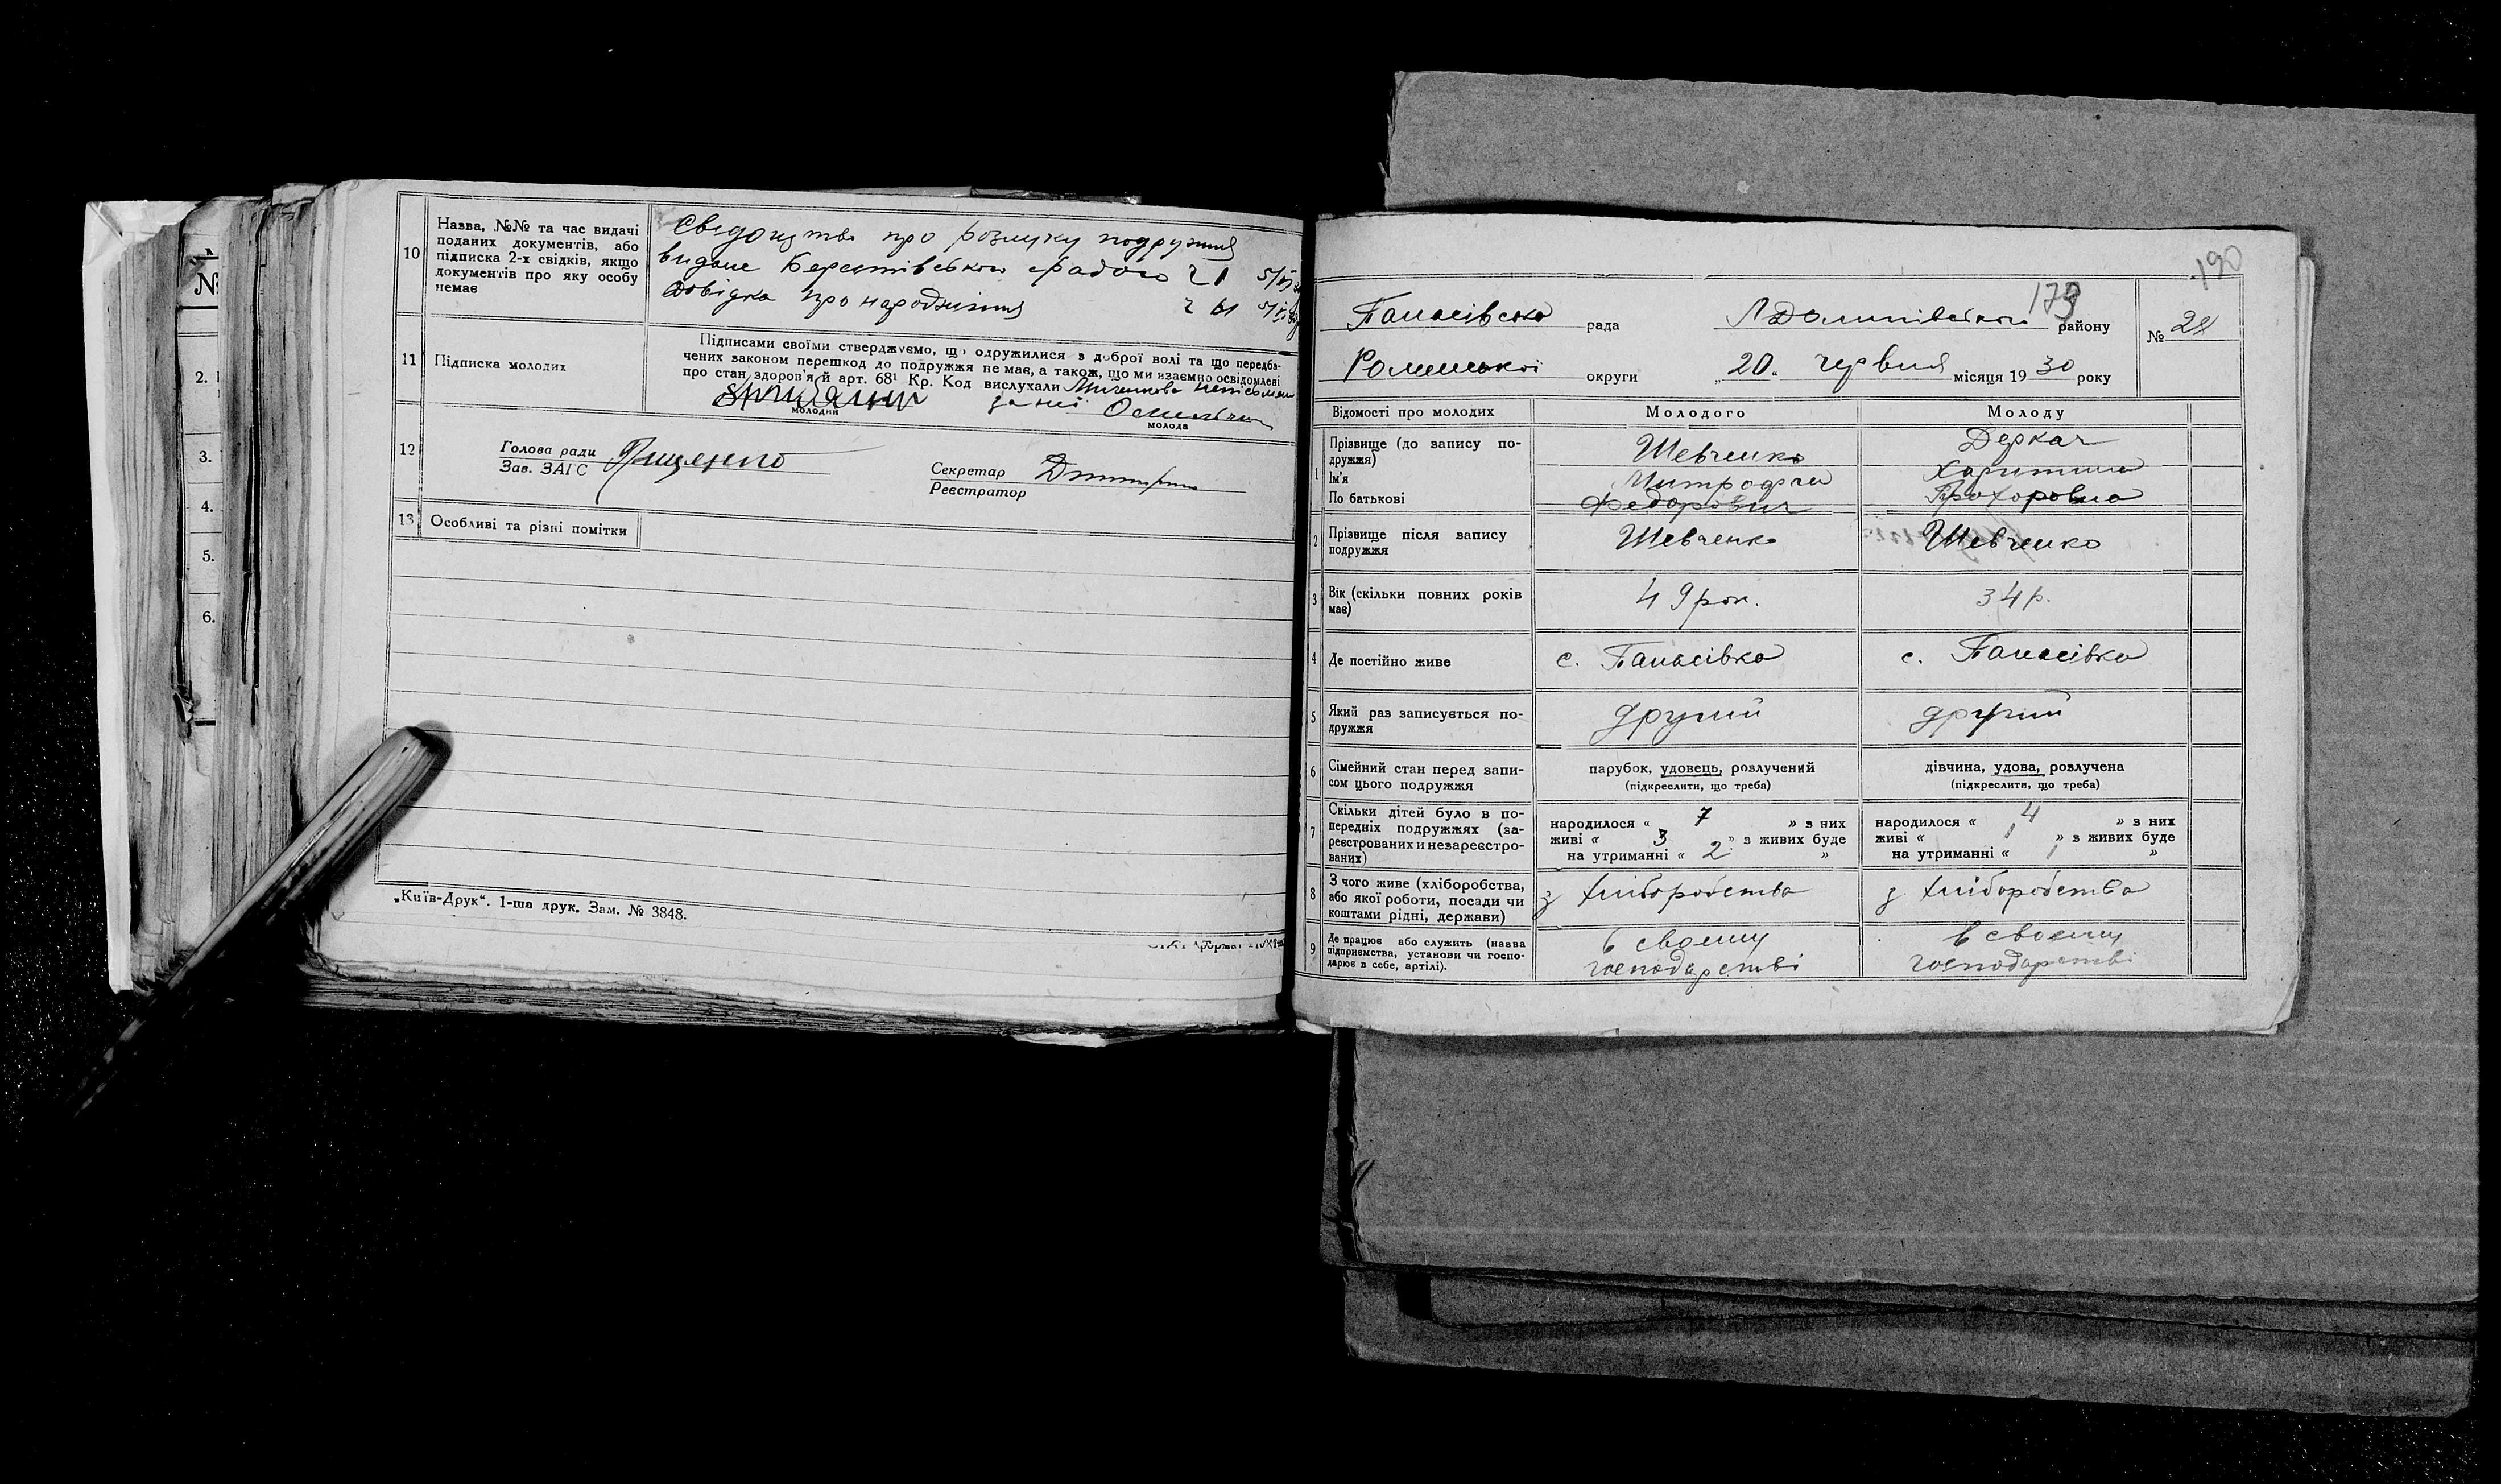 10
Назва, №№ та час видачі
поданих документів, або
підписка 2-х свідків, якщо
документів про яку особу
немає
Свідоцтво про розлуку подружжя
видане Берестівською с/радою
Довідка про народження
11
Підписка молодих
Підписами своїми стверджуємо, що одружилися з доброї волі та що передба-
чених законом перешкод до подружжя немає, а також, що ми взаємно освідомлені
про стан здоров'я й арт. 68¹ Кр. Код вислухали
молодий
за неї
молода
12
Голова ради
Зав. ЗАГС
Секретар
Реєстратор
13
Особливі та різні помітки
„Київ-Друк“. 1-ша друк. Зам. № 3848.
№
2.
3.
4.
5.
6.
190
173
Панасівська рада
району
№ 28
Роменської округи
„20„ червня місяця 1930 року
Відомості про молодих
Молодого
Молоду
1
Прізвище (до запису по-
дружжя)
Ім'я
По батькові
Шевченко
Митрофан
Федорович
Деркач
Харитина
Прохоровна
2
Прізвище після запису
подружжя
Шевченко
Шевченко
3
Вік (скільки повних років
має)
49 рок.
34 р.
4
Де постійно живе
с. Панасівка
с. Панасівка
5
Який раз записується по-
дружжя
другий
другий
6
Сімейний стан перед запи-
сом цього подружжя
парубок, удовець, розлучений
(підкреслити, що треба)
дівчина, удова, розлучена
(підкреслити, що треба)
7
Скільки дітей було в по-
передніх подружжях (за-
реєстрованих и незареєстро-
ваних)
народилося « 7 » з них
живі « 3 » з живих буде
на утриманні « 2 »
народилося « 4 » з них
живі « 1 » з живих буде
на утриманні « 1 »
8
З чого живе (хліборобства,
або якої роботи, посади чи
коштами рідні, держави)
з хліборобства
з хліборобства
9
Де працює або служить (назва
підприємства, установи чи госпо-
дарює в себе, артілі).
в своєму
господарстві
в своєму
господарстві